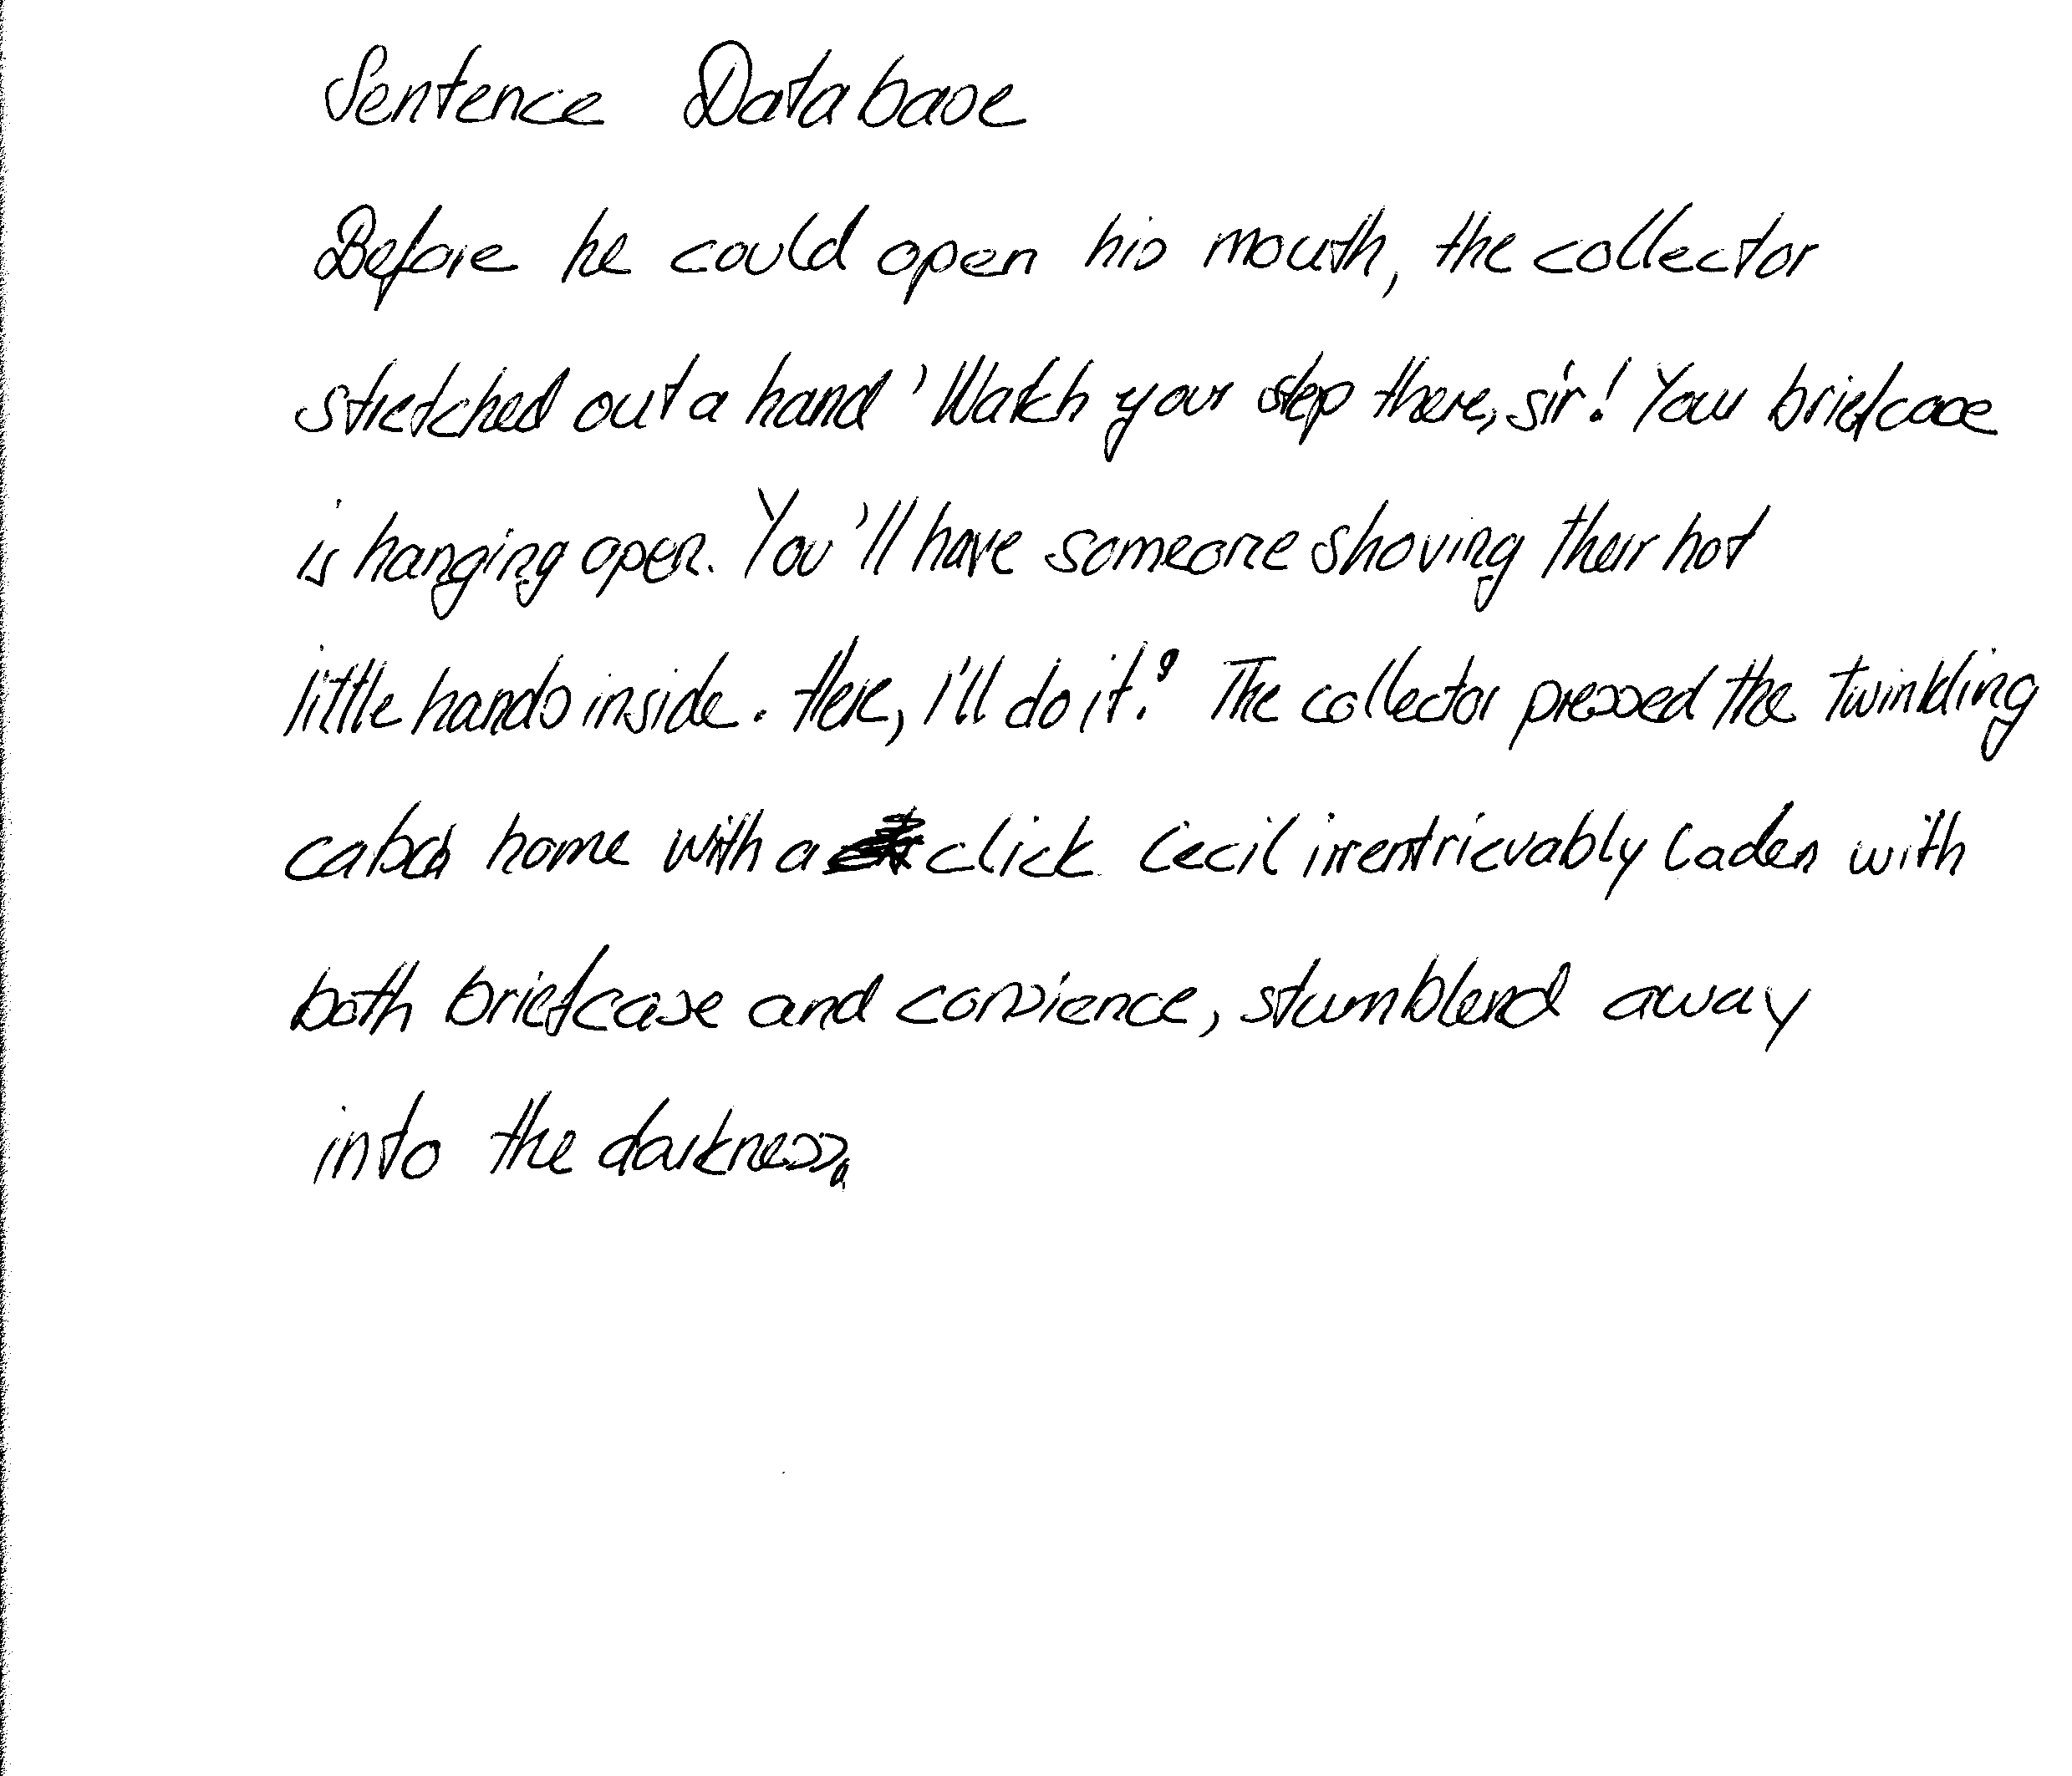 Sentence Database
Before he could open his mouth, the collector
stretched out a hand 'Watch your step there, sir! Your briefcase
is hanging open. You'll have someone shoving their hot
little hands inside. Here, I'll do it.' The collector pressed the twinkling
home with a click Cecil irrentrievably laden with
both briefcase and consience, stumblend away
into the darkness.